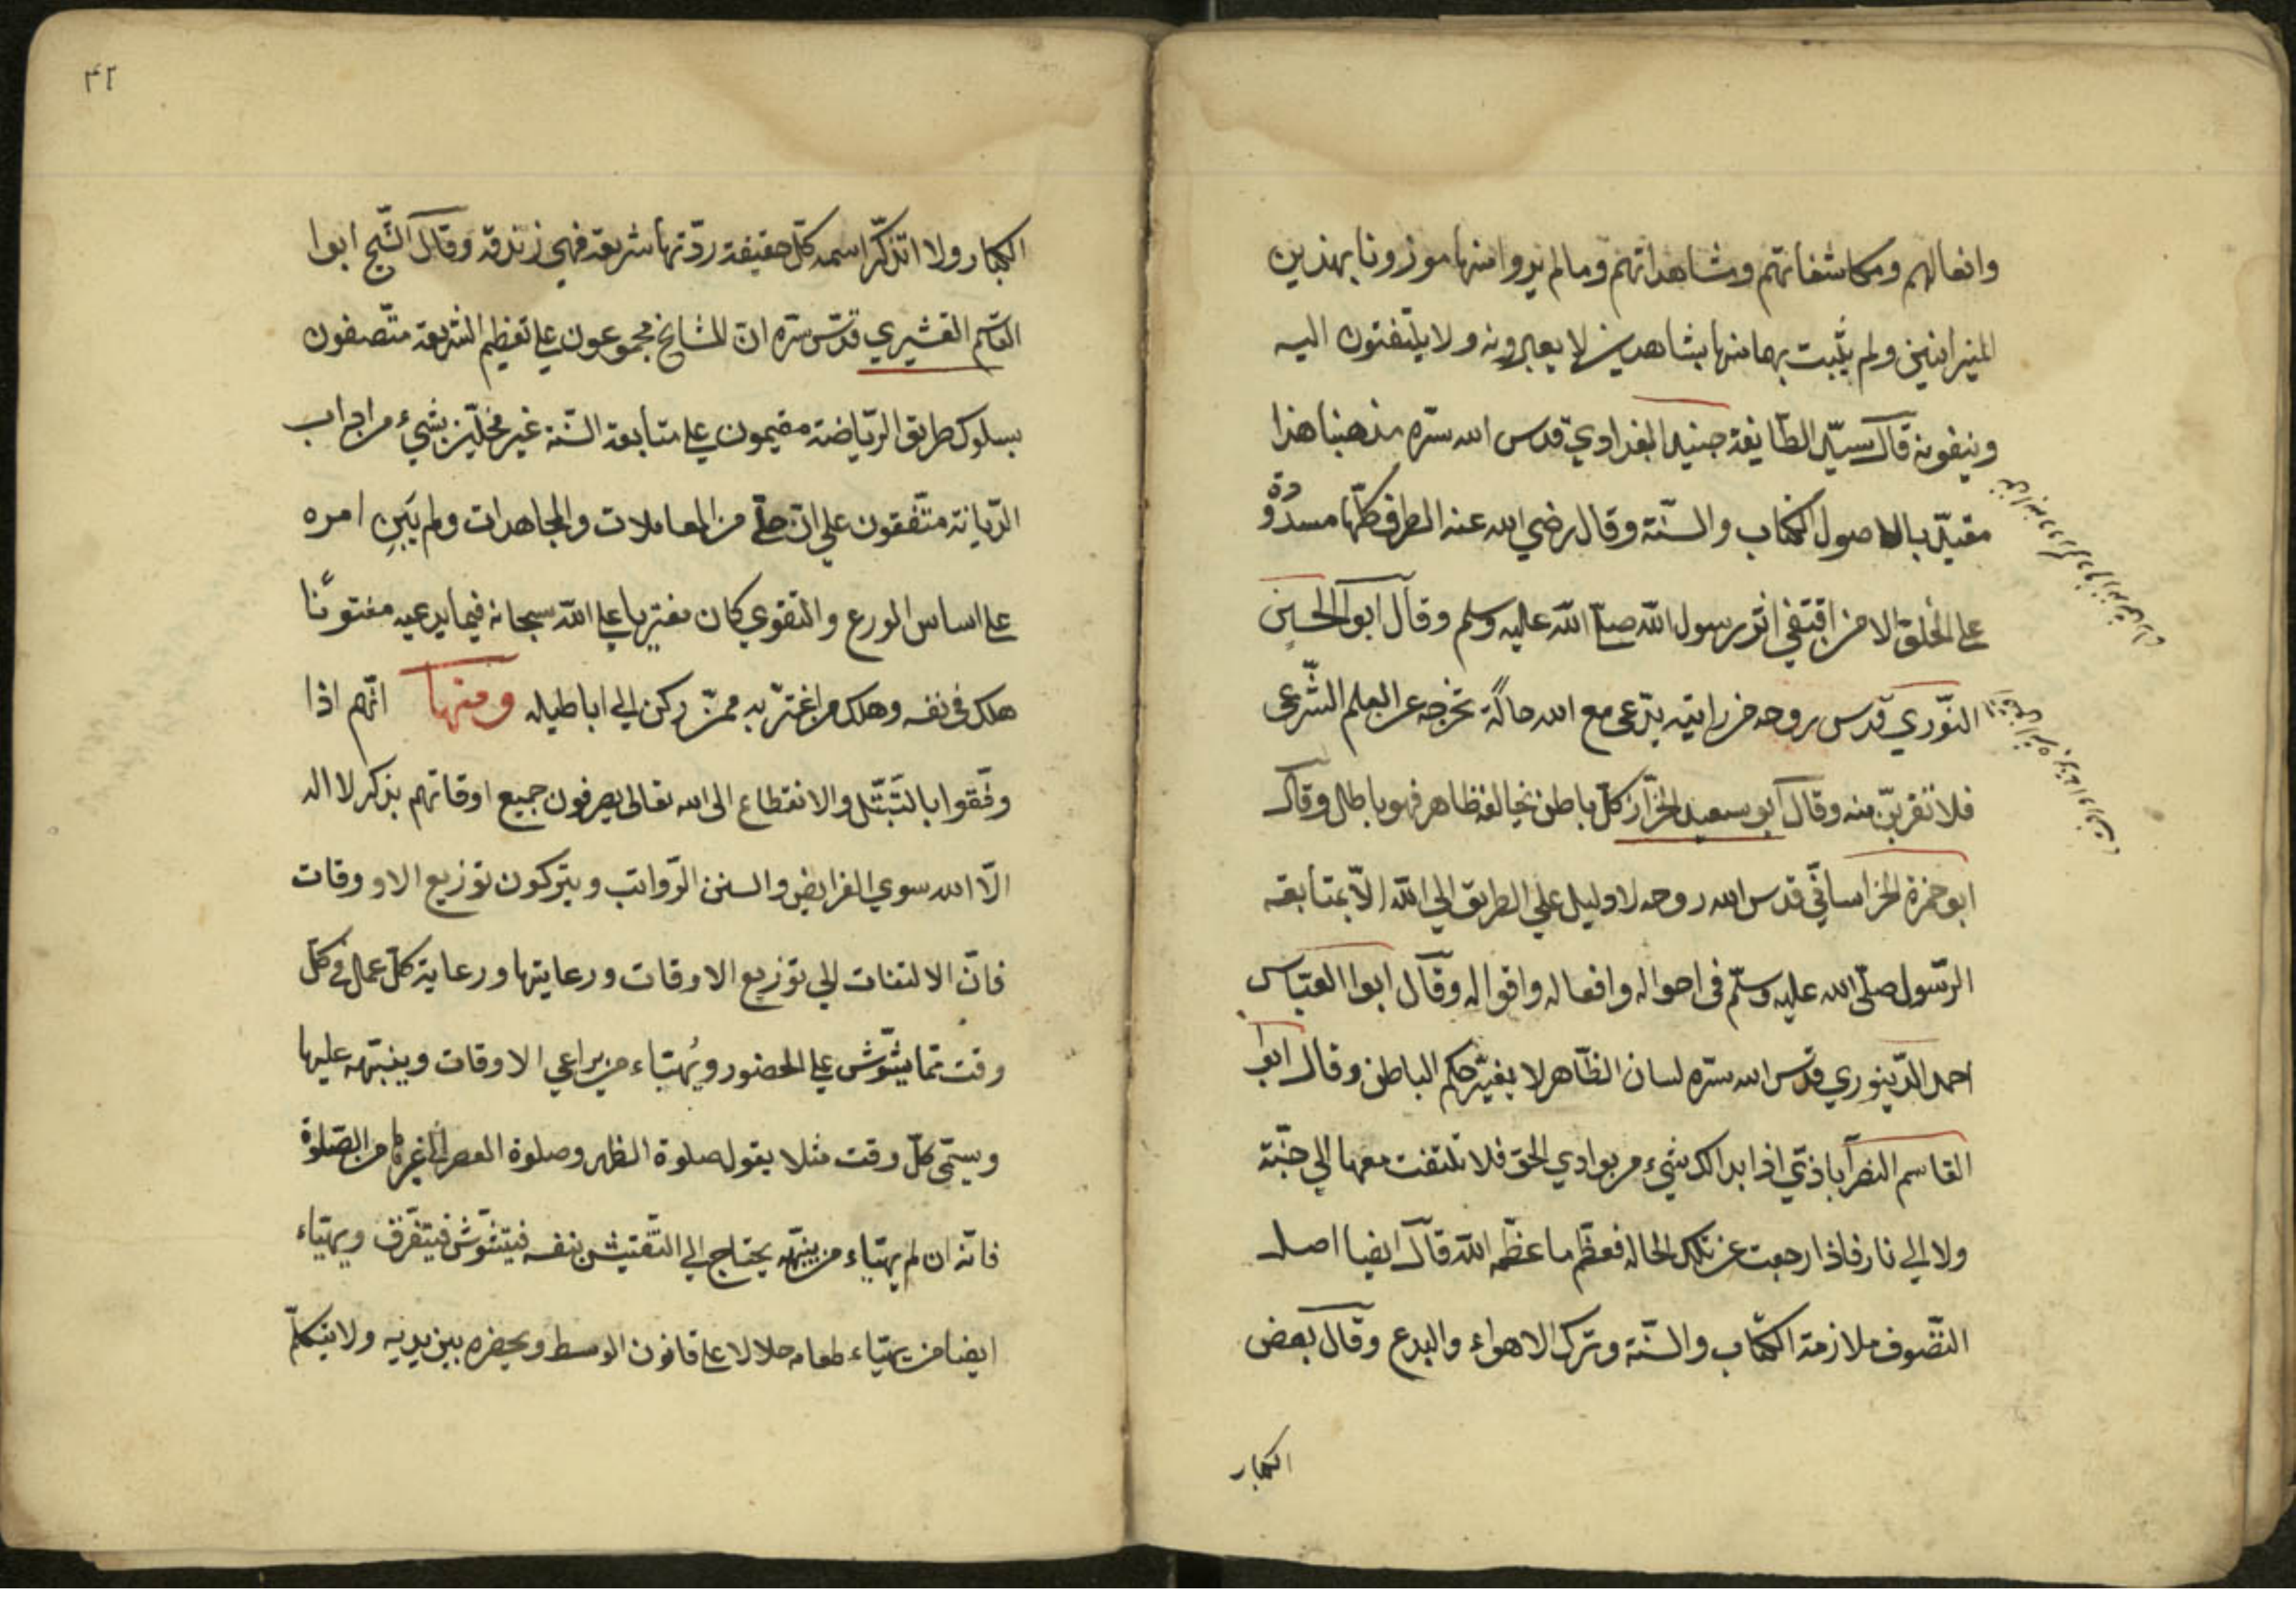 وافعالهم ومكاشفاتهم ومشاهداتهم وما لم يروا منها موزونا بهذين
الميزانين ولم يثبت بهما منها بشاهدين لا يعبرونه ولا يلتفتون اليه
وينفونه قال سيّد الطّايفة جنيد البغدادي قدس الله سرّه مذهبنا هذا
مقيّد بالاصول الكتاب والسّنّة وقال رضي الله عنه الطرق كلّها مسدُودة
على الخلق الا من اقتفى اثر رسول الله صلّى الله عليه وسلم وقال ابوا الحسين
النّوري قدس روحه من رايته يدّعى مع الله حالةً تخرجه عن العلم الشّرعى
فلا تقربنّ منه وقال ابو سعيد الخرّاز كلّ باطن يخالفه ظاهر فهو باطل وقال
ابو حمزة الخراسانّي قدس الله روحه لا دليل على الطريق الى الله الاّ بمتابعة
الرّسول صلّى الله عليه وسلّم فى احواله وافعاله واقواله وقال ابوا العبّاس
احمد الدّينوري قدس الله سرّه لسان الظّاهر لا يغيّر حكم الباطن وقال ابوا
القاسم النصرآباذىّ اذا بدا لك شيء من بوادي الحق فلا تلتفت معها الى جنّة
ولا الى نار فاذا رجعت عن تلك الحالة فعظّم ما عظّمه الله قال ايضا اصل
التّصّوف ملازمة الكتاب والسّنّة وترك الاهواء والبدع وقال بعض
الكبار
٤٢
الكبار ولا اتذكّر اسمه كلّ حقيقة ردّتها شريعة فهى زندقة وقال الشّيخ ابوا
القاسم القشيري قدّس سرّه انّ المشايخ مجموعون على تعظيم الشريعة متّصفون
بسلوك طريق الرّياضة مقيمون على متابعة السّنّة غير مخلّين بشيء من اداب
الدّيانة متّفقون على انّ من خلى من المعاملات والمجاهدات ولم يَبنِ امره
على اساس الورع والتقوي كان مفتريا على الله سبحانه فيما يدعيه مفتونًا
هلك فى نفسه وهلك من اغترّ به ممّن ركن الى اباطيله ومنها انّهم اذا
وفّقوا بالتّبتّل والانقطاع الى الله تعالى يصرفون جميع اوقاتهم بذكر لا اله
الاّ الله سوي الفرايض والسنن الرّواتب ويتركون توزيع الاووقات
فانّ الالتفات الى توزيع الاوقات ورعايتها ورعاية كلّ عمل فى كلّ
وقت ممّا يشّوش على الحضور ويُهيّاء من يراعي الاوقات وينبّهه عليها
ويسمّى كلّ وقت مثلا يقول صلوة الظهر وصلوة العصر الى غيرها من الصّلوة
فانّه ان لم يهيّاء من ينبّهه يحتاج الى التّفتيش بنفسه فيتشوّش فيتفّرق ويهيّاء
ايضا من يهيّاء طعامه حلالا على قانون الوسط ويحضره بين يديه ولا يتكلّم